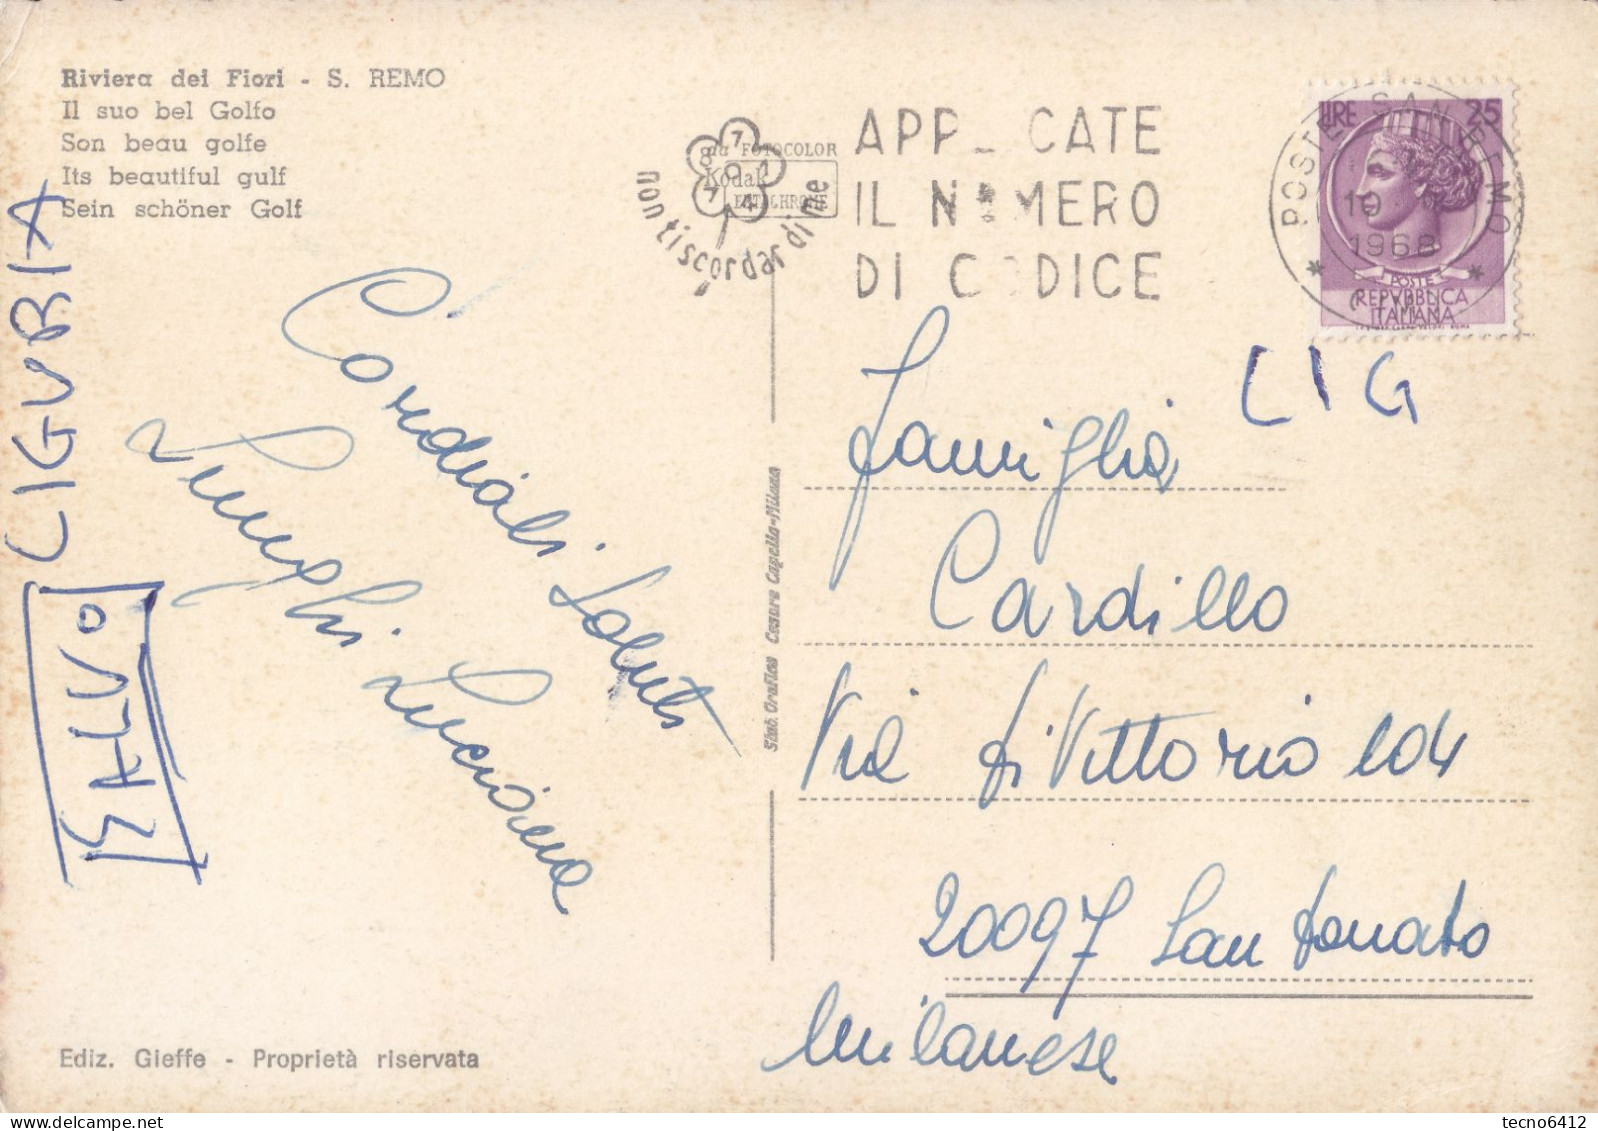 Riviera dei Fiori - S. REMO
Il suo bel Golfo
Son beau golfe
Its beautiful gulf
Sein schöner Golf
LIGURIA
Cordiali Saluti
Luciana
Ediz. Gieffe - Proprietà riservata
Stab. Grafico Cesare Capello-Milano
da FOTOCOLOR
Kodak
EKTACHROME
non ti scordar di me
APPLICATE
IL NUMERO
DI CODICE
POSTE SAN REMO
10
1968
LIRE 25
POSTE
REPVBBLICA
ITALIANA
LIG
Famiglia
Cardillo
Via di Vittorio 104
20097 San Donato
Milanese
tecno6412